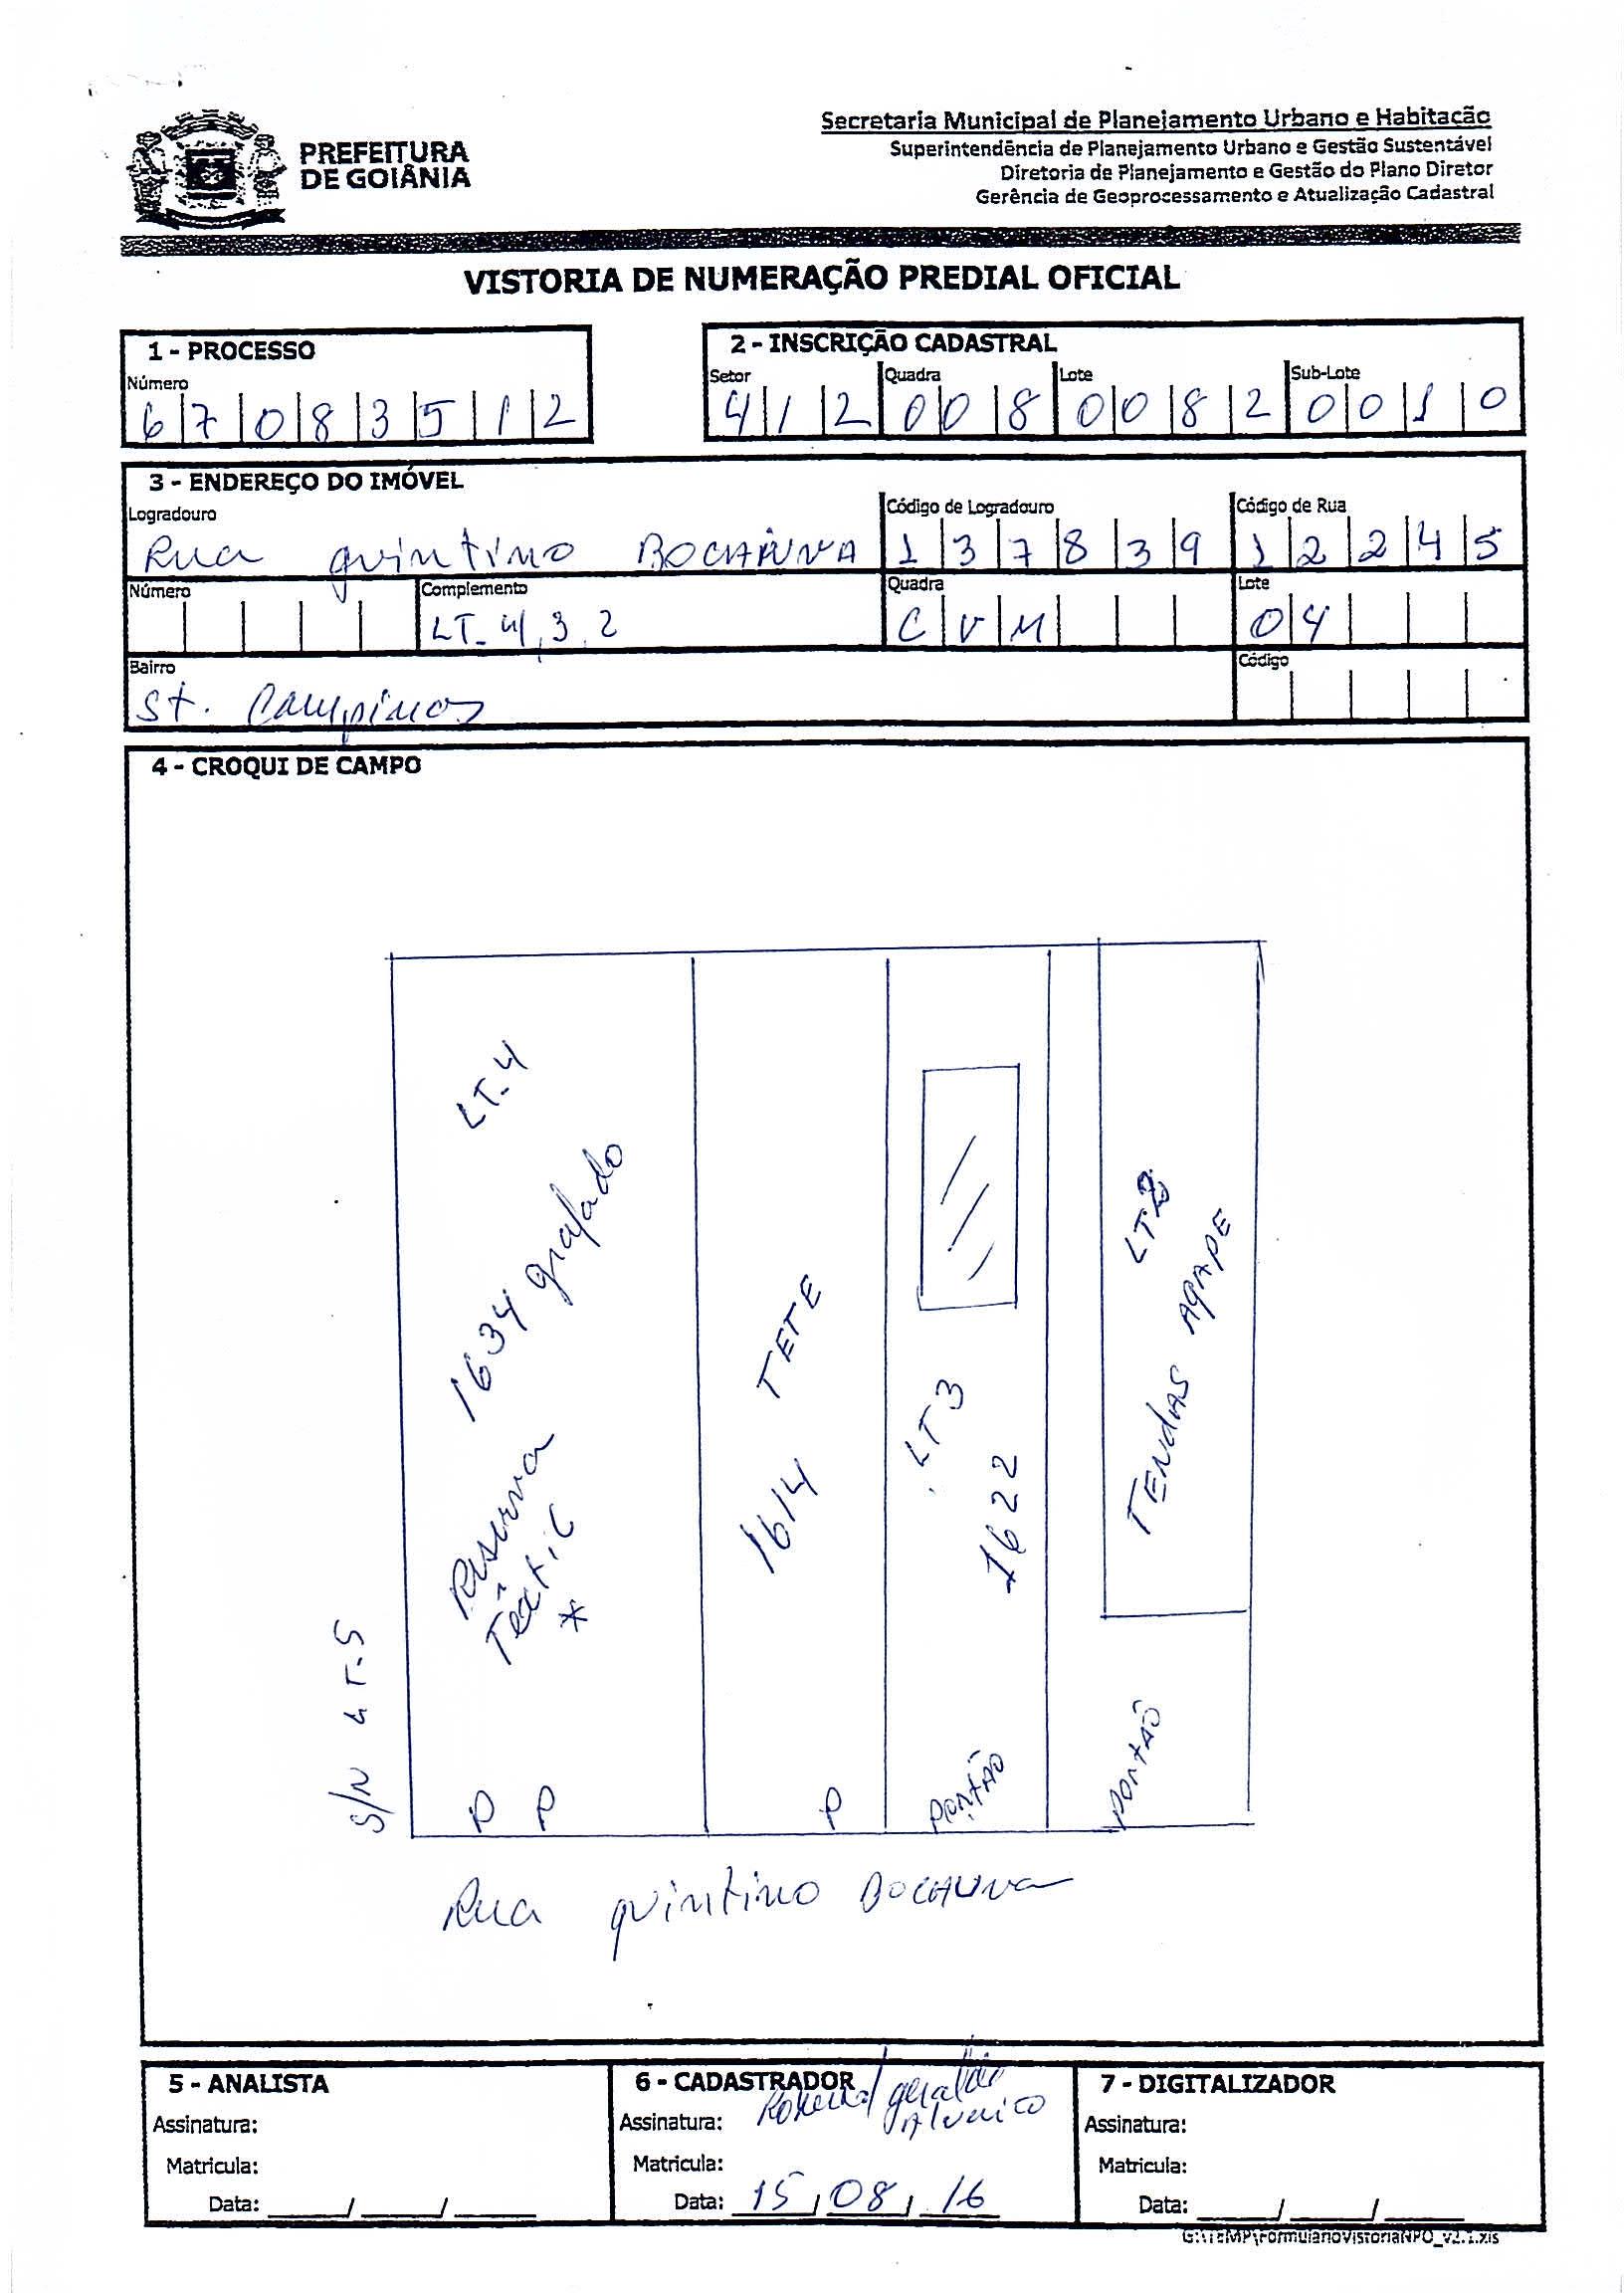 PREFEITURA
DE GOIÂNIA
Secretaria Municipal de Planejamento Urbano e Habitação
Superintendência de Planejamento Urbano e Gestão Sustentável
Diretoria de Planejamento e Gestão do Plano Diretor
Gerência de Geoprocessamento e Atualização Cadastral
VISTORIA DE NUMERAÇÃO PREDIAL OFICIAL
1 - PROCESSO
Número
6 7 0 8 3 5 1 2
2 - INSCRIÇÃO CADASTRAL
Setor Quadra Lote Sub-Lote
4 1 2 0 0 8 0 0 8 2 0 0 1 0
3 - ENDEREÇO DO IMÓVEL
Logradouro Código de Logradouro Código de Rua
Rua quintino BOCAIUVA 1 3 7 8 3 9 1 2 2 4 5
Número Complemento Quadra Lote
LT_4, 3, 2 C V M 0 4
Bairro Código
St. Campinas
4 - CROQUI DE CAMPO
LT_4
1634 grafado
Reserva
Têxtil
*
TETE
1614
LT3
1622
LT2
TENDAS AGAPE
S/N LT-5
P P P PORTÃO PORTÃO
Rua quintino Bocaiuva
5 - ANALISTA
Assinatura:
Matrícula:
Data: ___/___/___
6 - CADASTRADOR
Assinatura: geraldo
Matrícula:
Data: 15/08/16
7 - DIGITALIZADOR
Assinatura:
Matrícula:
Data: ___/___/___
G:\TEMP\FormularioVistoriaNPO_v2.1.xls